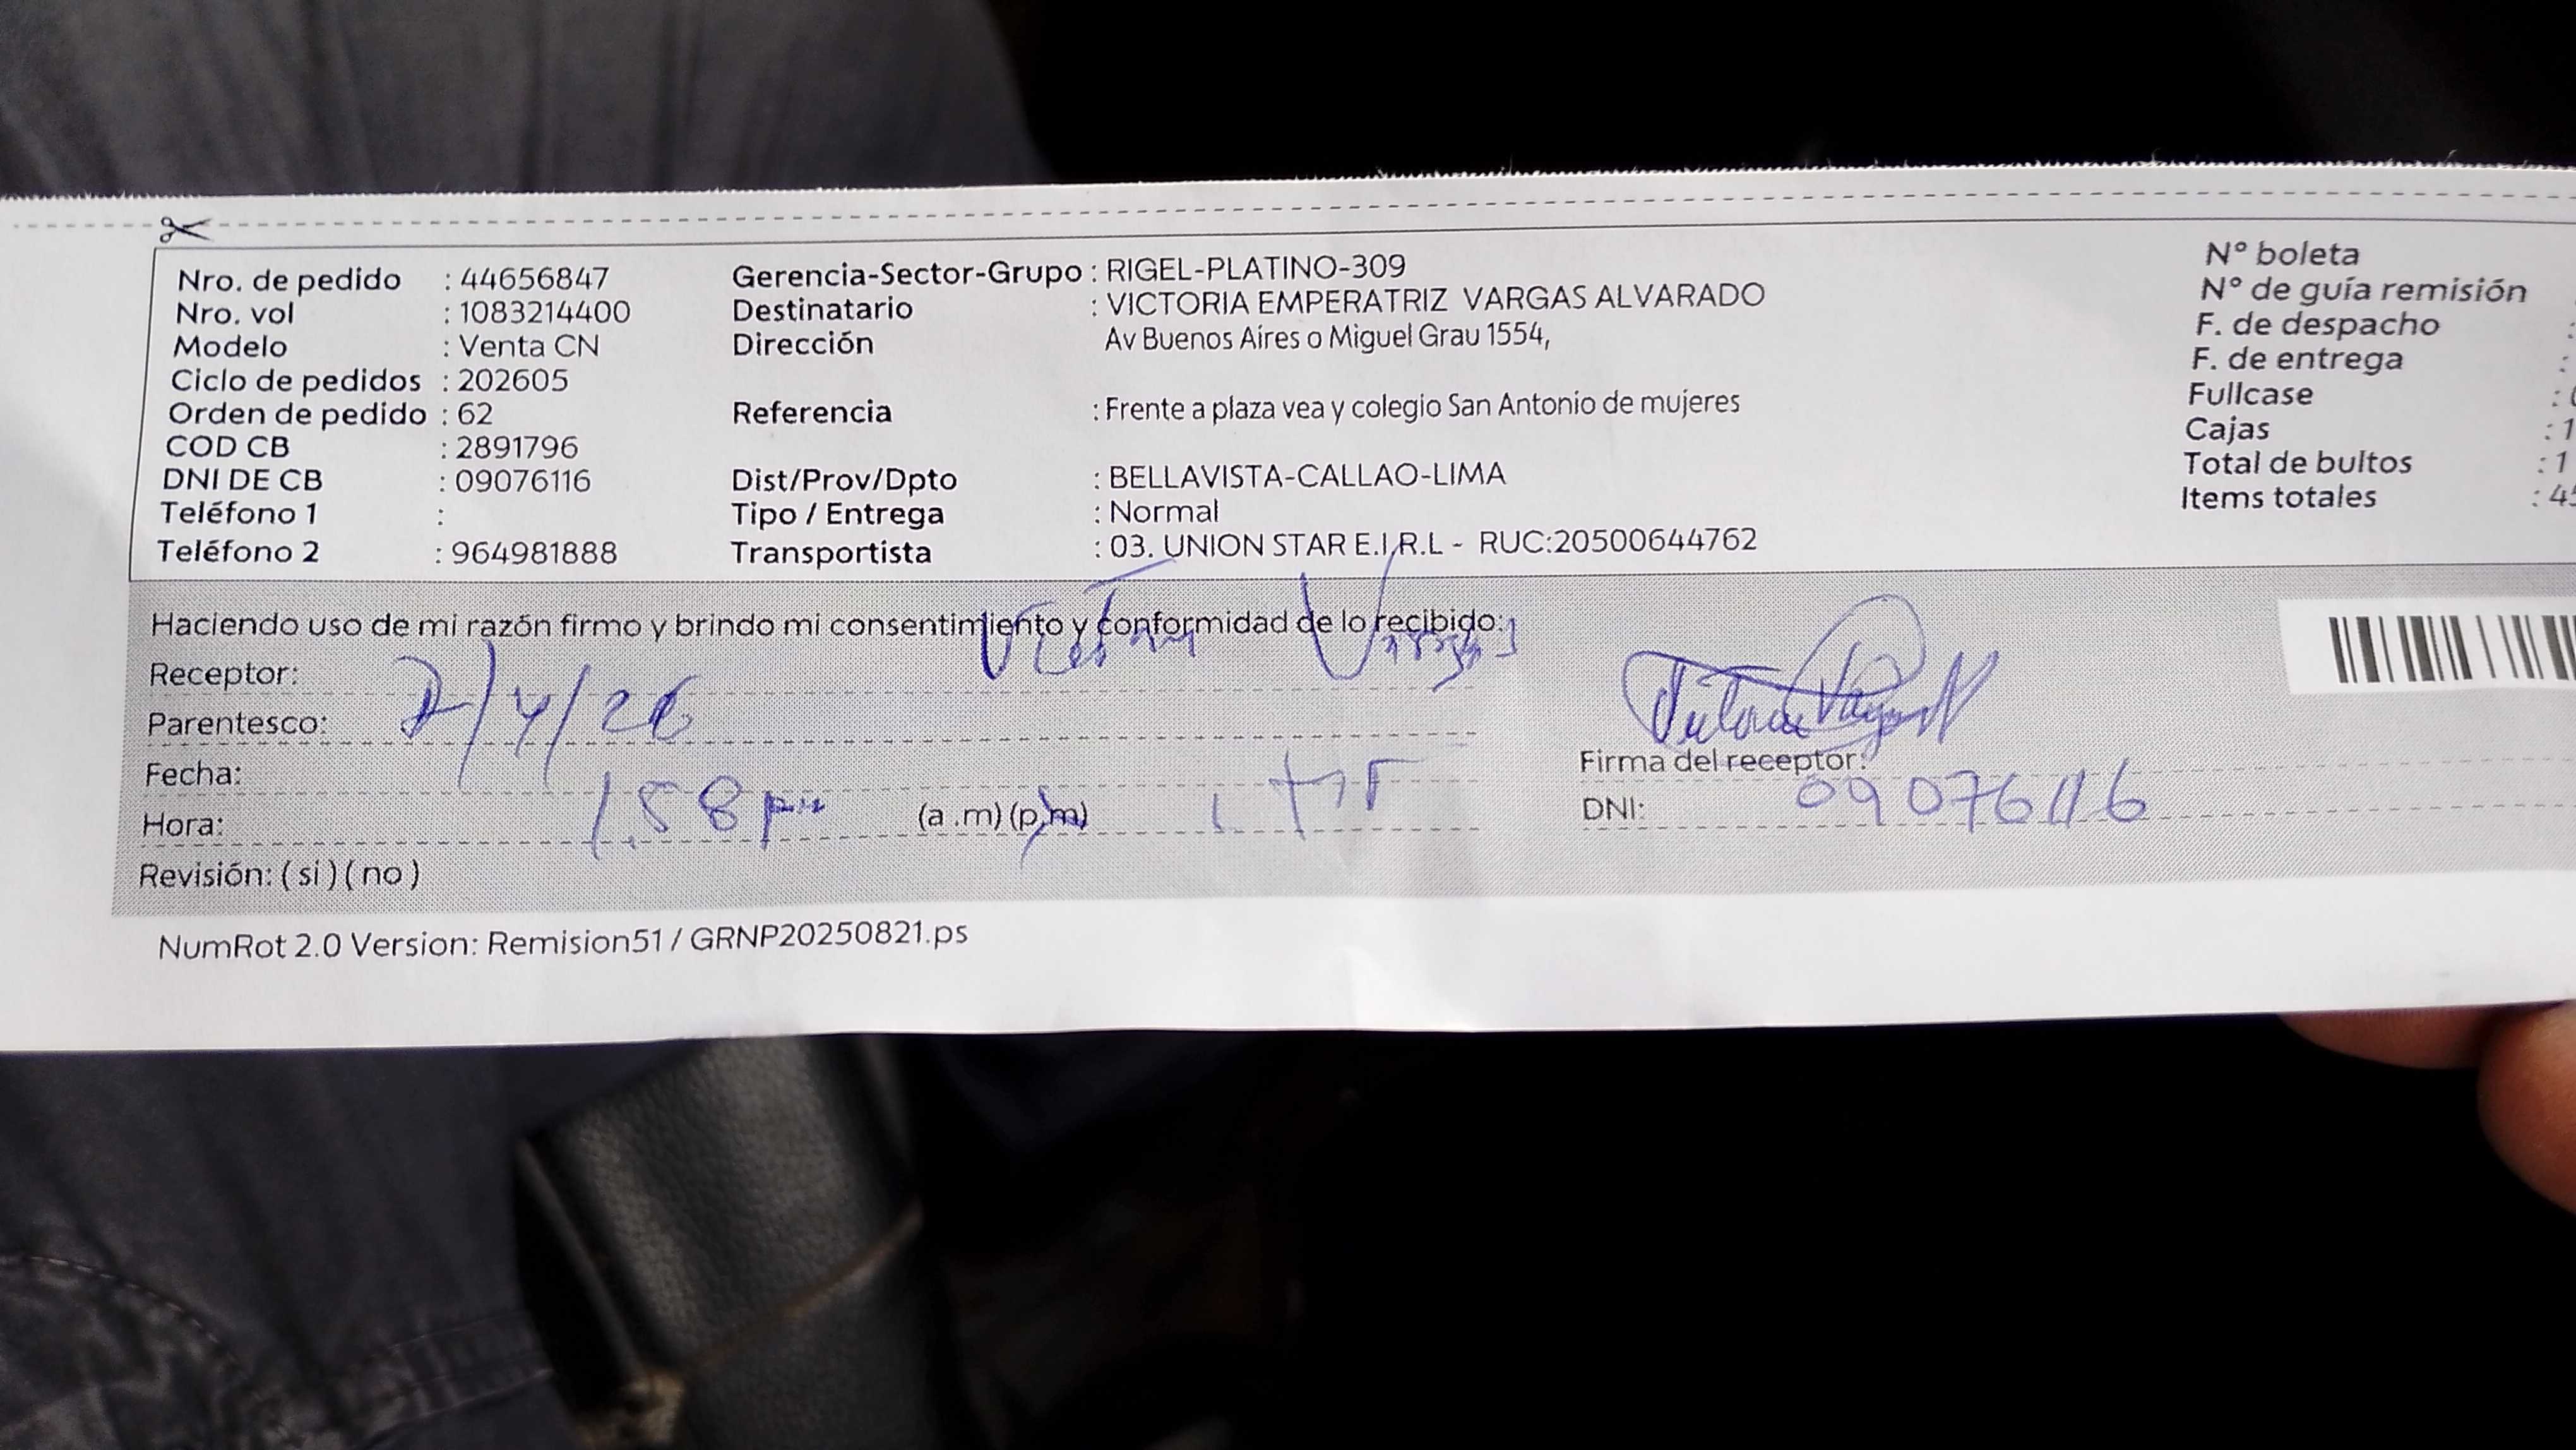 Nro. de pedido : 44656847 Gerencia-Sector-Grupo : RIGEL-PLATINO-309 N° boleta
Nro. vol : 1083214400 Destinatario : VICTORIA EMPERATRIZ VARGAS ALVARADO N° de guía remisión
Modelo : Venta CN Dirección Av Buenos Aires o Miguel Grau 1554, F. de despacho :
Ciclo de pedidos : 202605 F. de entrega :
Orden de pedido : 62 Referencia : Frente a plaza vea y colegio San Antonio de mujeres Fullcase :
COD CB : 2891796 Cajas : 1
DNI DE CB : 09076116 Dist/Prov/Dpto : BELLAVISTA-CALLAO-LIMA Total de bultos : 1
Teléfono 1 : Tipo / Entrega : Normal Items totales : 45
Teléfono 2 : 964981888 Transportista : 03. UNION STAR E.I.R.L - RUC:20500644762
Haciendo uso de mi razón firmo y brindo mi consentimiento y conformidad de lo recibido:
Receptor: Victoria Vargas
Parentesco: /4/26
Fecha: Firma del receptor:
Hora: 1.58 pm (a .m) (p.m) DNI: 09076116
Revisión: ( si ) ( no )
NumRot 2.0 Version: Remision51 / GRNP20250821.ps